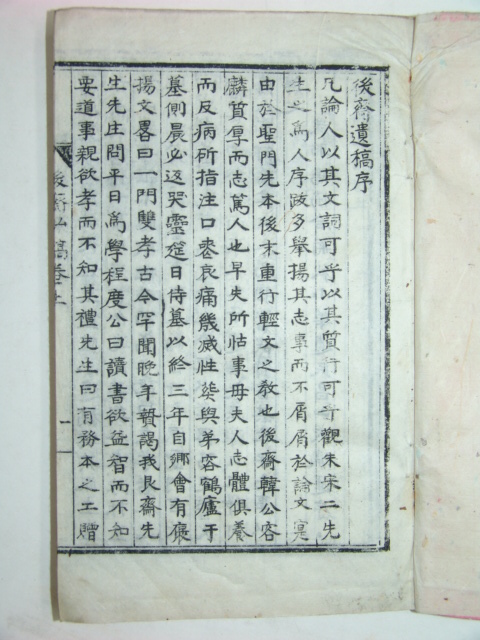 後齋遺稿序
凡論人以其文詞可乎以其質行可乎觀朱宋二先
生之爲人序跋多舉揚其志事而不屑屑於論文寔
由於聖門先本後末重行輕文之敎也後齋韓公容
麟質厚而志篤人也早失所怙事母夫人志體俱養
而及病斫指注口丧哀痛幾滅性葬與弟容鶴廬于
墓側晨必返哭靈筵日侍墓以終三年自鄕會有褒
揚文畧曰一門雙孝古今罕聞晩年贄謁我艮齋先
生先生問平日爲學程度公曰讀書欲益智而不知
要道事親欲孝而不知其禮先生曰有務本之工贈
後齋 稿卷上
一